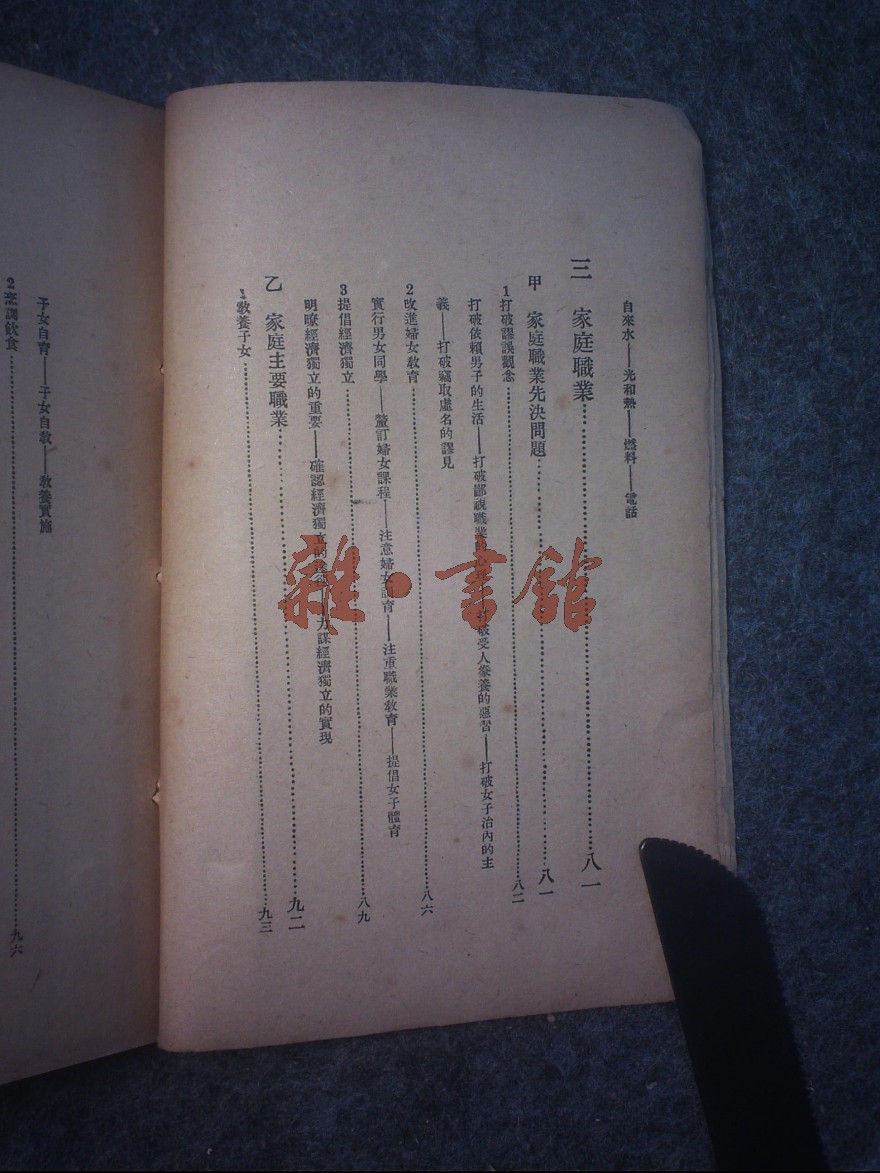 自來水——光和熱——燃料——電話
三　家庭職業……八一
甲　家庭職業先決問題……八一
1打破謬誤觀念……八二
打破依賴男子的生活——打破鄙視職業的——打破受人豢養的惡習——打破女子治內的主
義——打破竊取虛名的謬見
2改進婦女教育……八六
實行男女同學——釐訂婦女課程——注意婦女訓育——注重職業教育——提倡女子體育
3提倡經濟獨立……八九
明瞭經濟獨立的重要——確認經濟獨立的——力謀經濟獨立的實現
乙　家庭主要職業……九二
1教養子女……九三
子女自育——子女自教——教養實施
2烹調飲食……九六
雜·書館